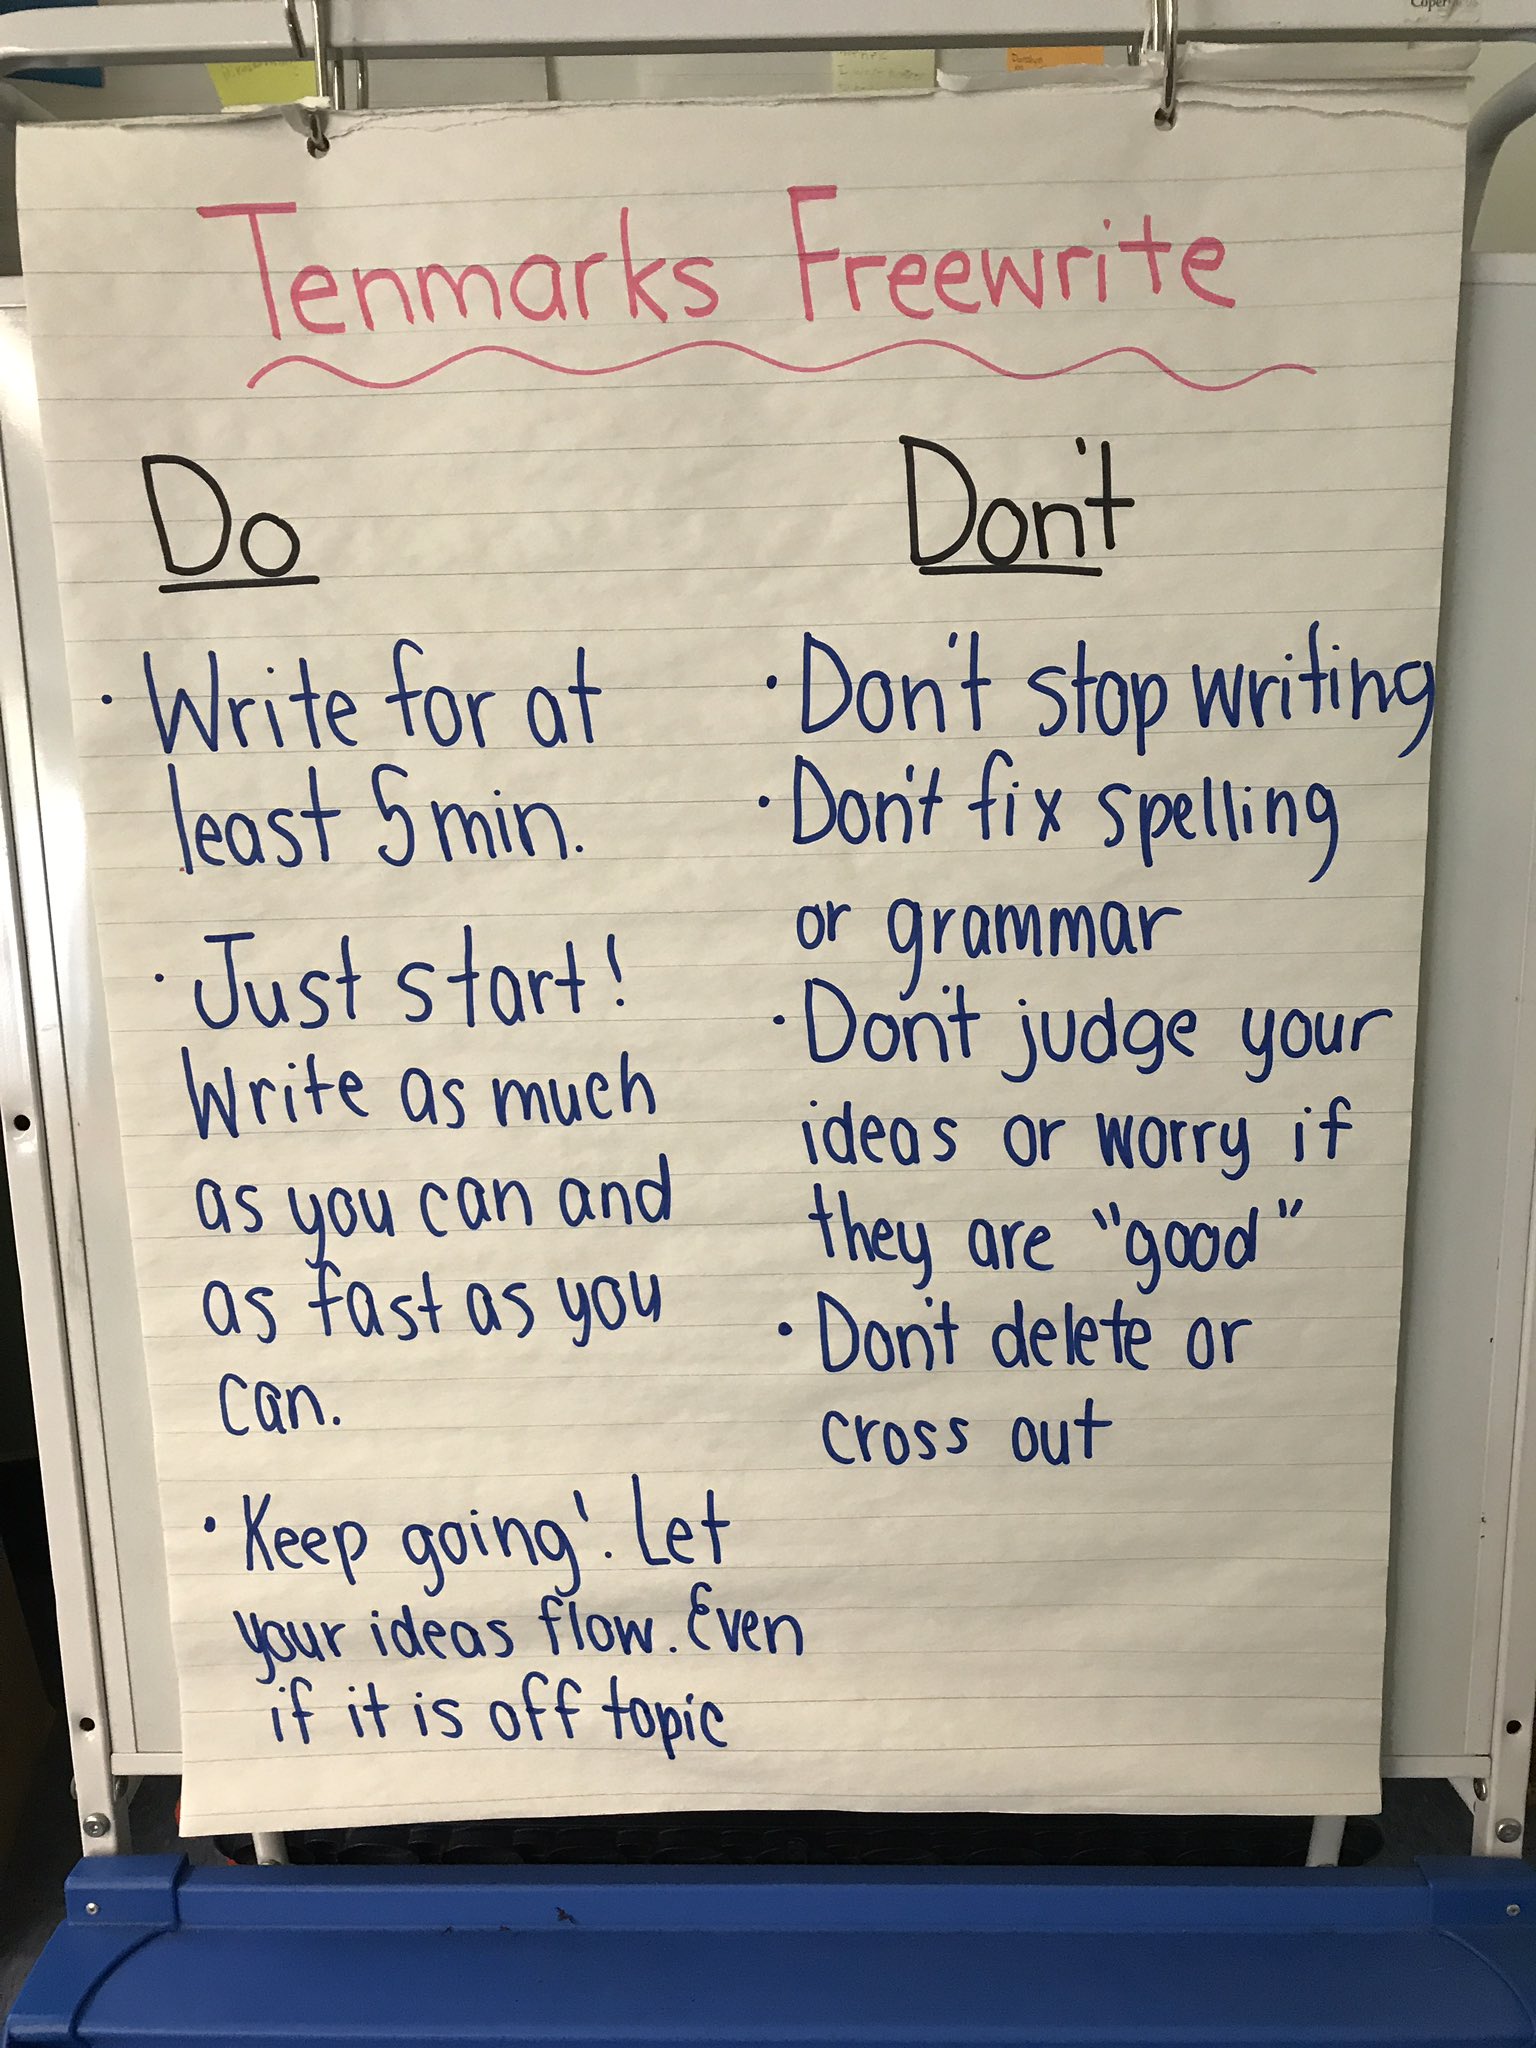 Tenmarks Freewrite
Do
· Write for at
least 5 min.
· Just start!
Write as much
as you can and
as fast as you
can.
· Keep going! Let
your ideas flow. Even
if it is off topic
Don't
· Don't stop writing
· Don't fix spelling
or grammar
· Don't judge your
ideas or worry if
they are "good"
· Don't delete or
cross out